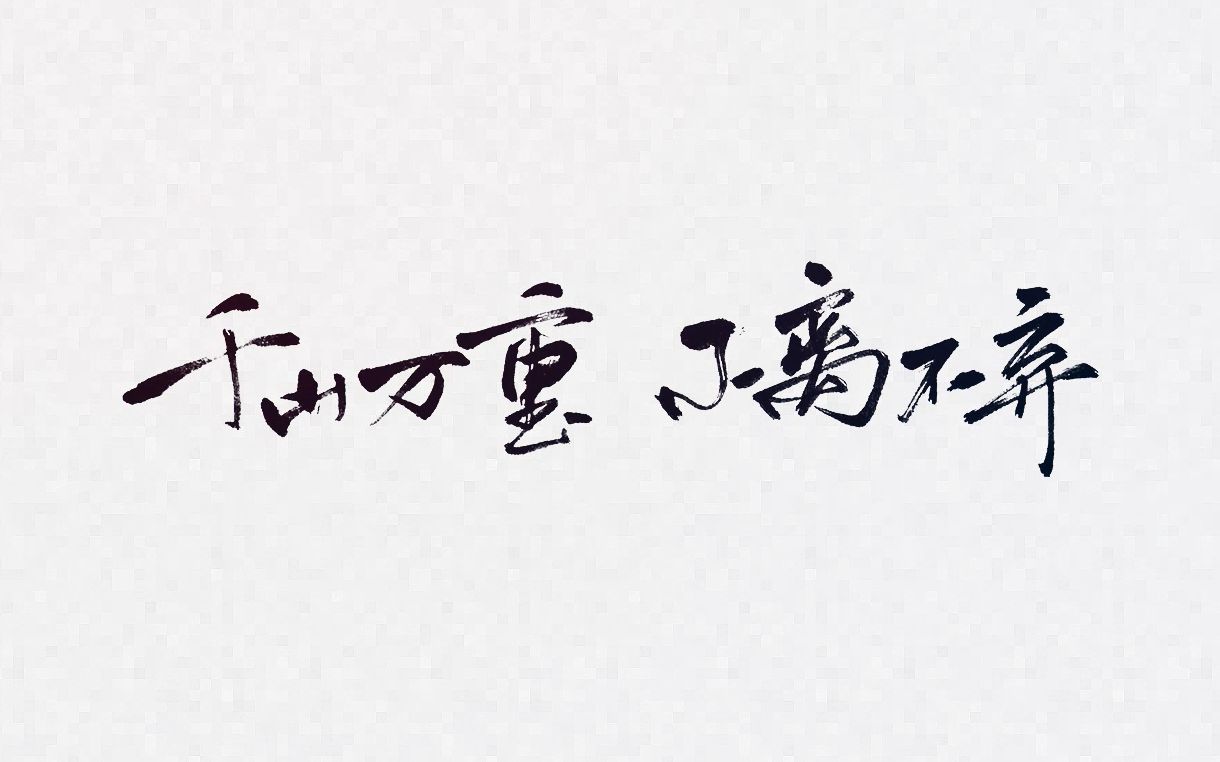 千山万重 不离不弃